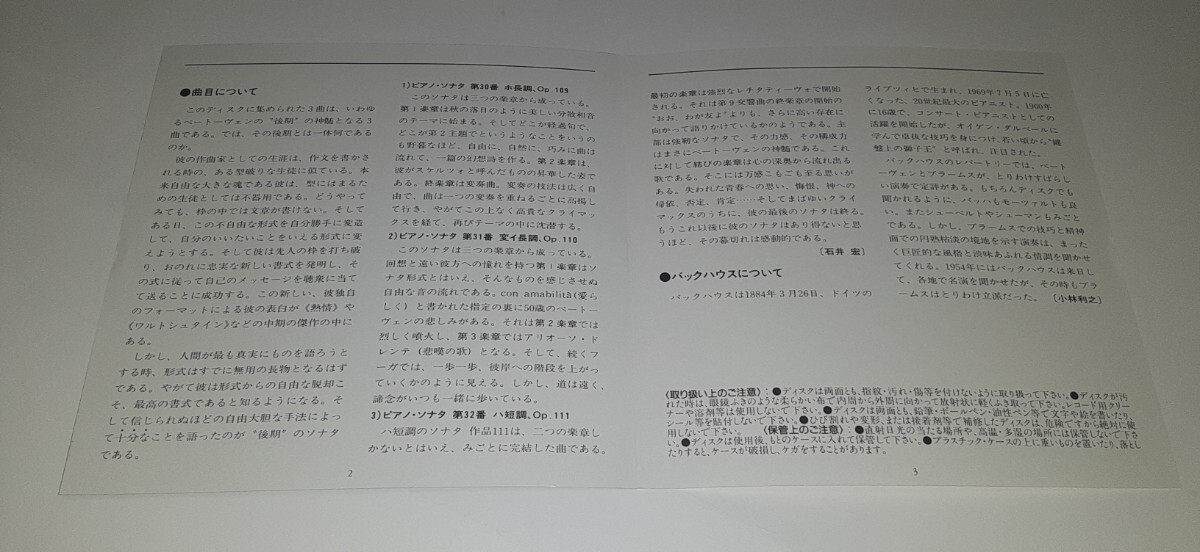 ●曲目について
このディスクに集められた3曲は、いわゆ
るベートーヴェンの"後期"の神髄となる3
曲である。では、その後期とは一体何である
のか。
彼の作曲家としての生涯は、作文を書かさ
れる時の、ある型破りな生徒に似ている。本
来自由な大きな魂である彼は、型にはまるた
めの生徒としては不器用である。どうやって
みても、枠の中では文章が書けない。そして
ある日、この不自由な形式を自分勝手に変造
して、自分のいいたいことをいえる形式に変
えようとする。そして彼は先人の枠を打ち破
り、おのれに忠実な新しい書式を発明し、そ
の式に従って自己のメッセージを聴衆に当て
て送ることに成功する。この新しい、彼独自
のフォーマットによる彼の表白が《熱情》や
《ワルトシュタイン》などの中期の傑作の中に
ある。
しかし、人間が最も真実にものを語ろうと
する時、形式はすでに無用の長物となるはず
である。やがて彼は形式からの自由な脱却こ
そ、最高の書式であると知るようになる。そ
して信じられぬほどの自由大胆な手法によっ
て十分なことを語ったのが"後期"のソナタ
である。
1)ピアノ・ソナタ 第30番 ホ長調、Op 109
このソナタは三つの楽章から成っている。
第1楽章は秋の落日のように美しい分散和音
のテーマに始まる。そしてどこが経過句で、
どこが第2主題でというようなことをいうの
も野暮なほど、自由に、自然に、巧みに曲は
流れて、一篇の幻想詩を作る。第2楽章は、
彼がスケルツォと呼んだものの昇華した姿で
ある。終楽章は変奏曲。変奏の技法は広く自
由で、曲は一つの変奏を重ねるごとに高揚し
て行き、やがてこの上なく高貴なクライマッ
クスを経て、再びテーマの中に沈潜する。
2)ピアノ・ソナタ 第31番 変イ長調、Op.110
このソナタは三つの楽章から成っている。
回想と遠い彼方への憧れを持つ第1楽章はソ
ナタ形式とはいえ、そんなものを感じさせぬ
自由な音の流れである。con amabilità(愛ら
しく)と書かれた指定の裏に50歳のベートー
ヴェンの悲しみがある。それは第2楽章では
烈しく噴火し、第3楽章ではアリオーソ・ド
レンテ(悲嘆の歌)となる。そして、続くフ
ーガでは、一歩一歩、彼岸への階段を上がっ
ていくかのように見える。しかし、道は遠く、
諦念がいつも一緒に歩いている。
3)ピアノ・ソナタ 第32番 ハ短調、Op.111
ハ短調のソナタ 作品111は、三つの楽章し
かないとはいえ、みごとに完結した曲である。
2
最初の楽章は強烈なレチタティーヴォで開始
される。それは第9交響曲の終楽章の開始の
"おお、わが友よ"よりも、さらに高い存在に
向かって語りかけているかのようである。主
部は強靭なソナタで、その力感、その構成力
はまさにベートーヴェンの神髄である。これ
に対して結びの楽章は心の深奥から流れ出る
歌である。そこには万感こもごも至る思いが
ある。失われた青春への思い、悔恨、神への
帰依、否定、肯定……そしてまばゆいクライ
マックスのうちに、彼の最後のソナタは終る。
もうこれ以後に彼のソナタはあり得ないと思
うほど、その幕切れは感動的である。
〔石井 宏〕
●バックハウスについて
バックハウスは1884年3月26日、ドイツの
ライプツィヒで生まれ、1969年7月5日に亡
くなった、20世紀最大のピアニスト。1900年
に16歳で、コンサート・ピアニストとしての
活躍を開始したが、オイゲン・ダルベールに
学んで卓抜な技巧を身につけ、若い頃から"鍵
盤上の獅子王"と呼ばれ、注目された。
バックハウスのレパートリーでは、ベート
ーヴェンとブラームスが、とりわけすばらし
い演奏で定評がある。もちろんディスクでも
聞かれるように、バッハもモーツァルトも良
い。またシューベルトやシューマンもみごと
である。しかし、ブラームスでの技巧と精神
面での円熟枯淡の境地を示す演奏は、まった
く巨匠的な風格と淡味あふれる情調を聞かせ
てくれる。1954年にはバックハウスは来日し
て、各地で名演を聞かせたが、その時もブラ
ームスはとりわけ立派だった。〔小林利之〕
〈取り扱い上のご注意〉:●ディスクは両面とも、指紋・汚れ・傷等を付けないように取り扱って下さい。●ディスクが汚
れた時は、眼鏡ふきのような柔らかい布で内周から外周に向かって放射状に軽くふき取って下さい。レコード用クリー
ナーや溶剤等は使用しないで下さい。●ディスクは両面とも、鉛筆・ボールペン・油性ペン等で文字や絵を書いたり、
シール等を貼付しないで下さい。●ひび割れや変形、または接着剤等で補修したディスクは、危険ですから絶対に使
用しないで下さい。 〈保管上のご注意〉:●直射日光の当たる場所や、高温・多湿の場所には保管しないで下さ
い。●ディスクは使用後、もとのケースに入れて保管して下さい。●プラスチック・ケースの上に重いものを置いたり、落とし
たりすると、ケースが破損し、ケガをすることがあります。
3